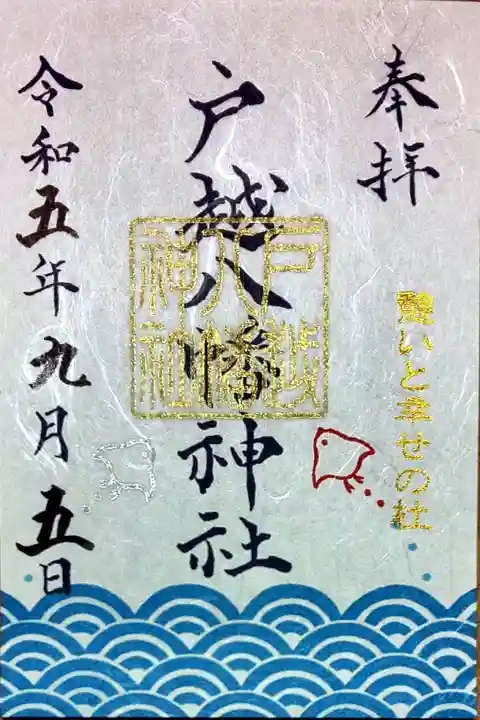 奉拝
戸越八幡神社
戸越
八幡
神社
令和五年九月五日
いと幸せの社